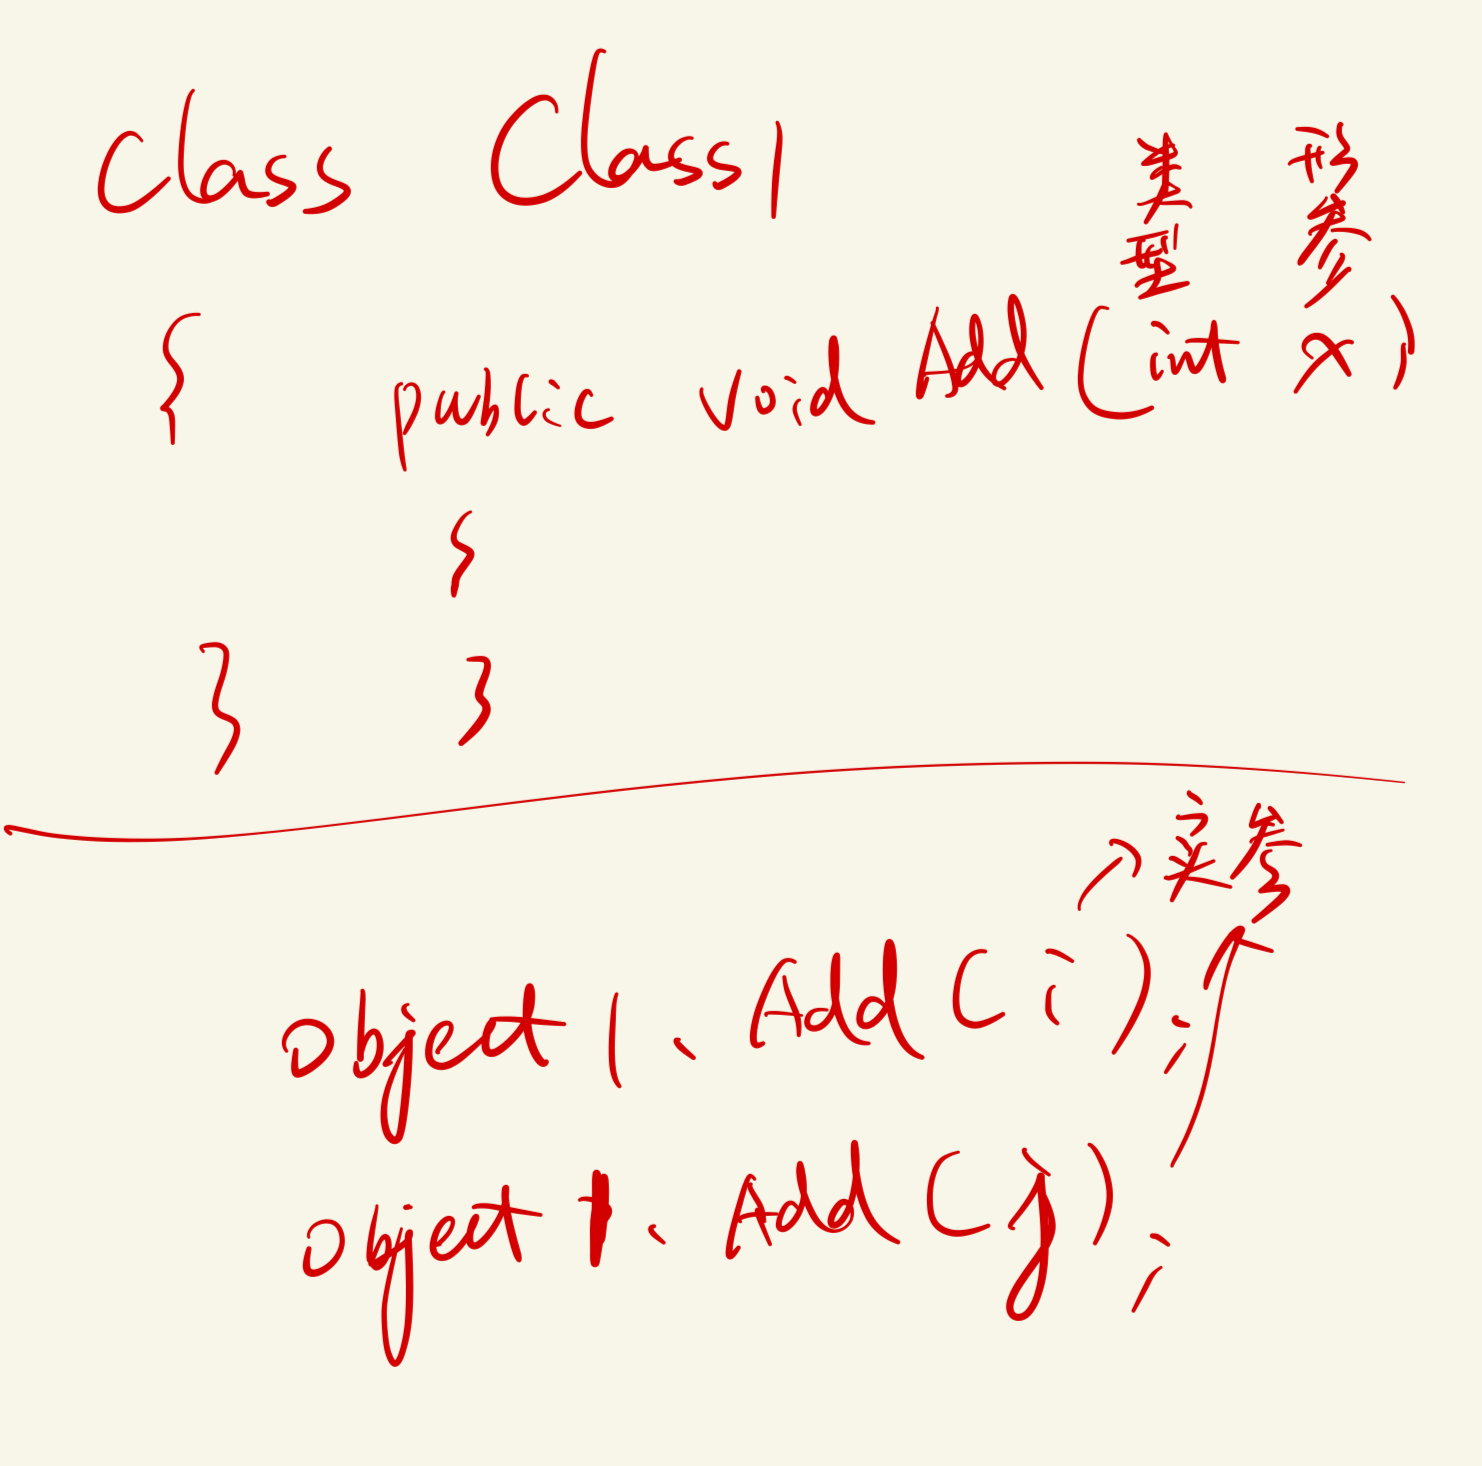 class Class1
类型 形参
{ public void Add(int x)
{
} }
实参
object1.Add(i);
object1.Add(j);